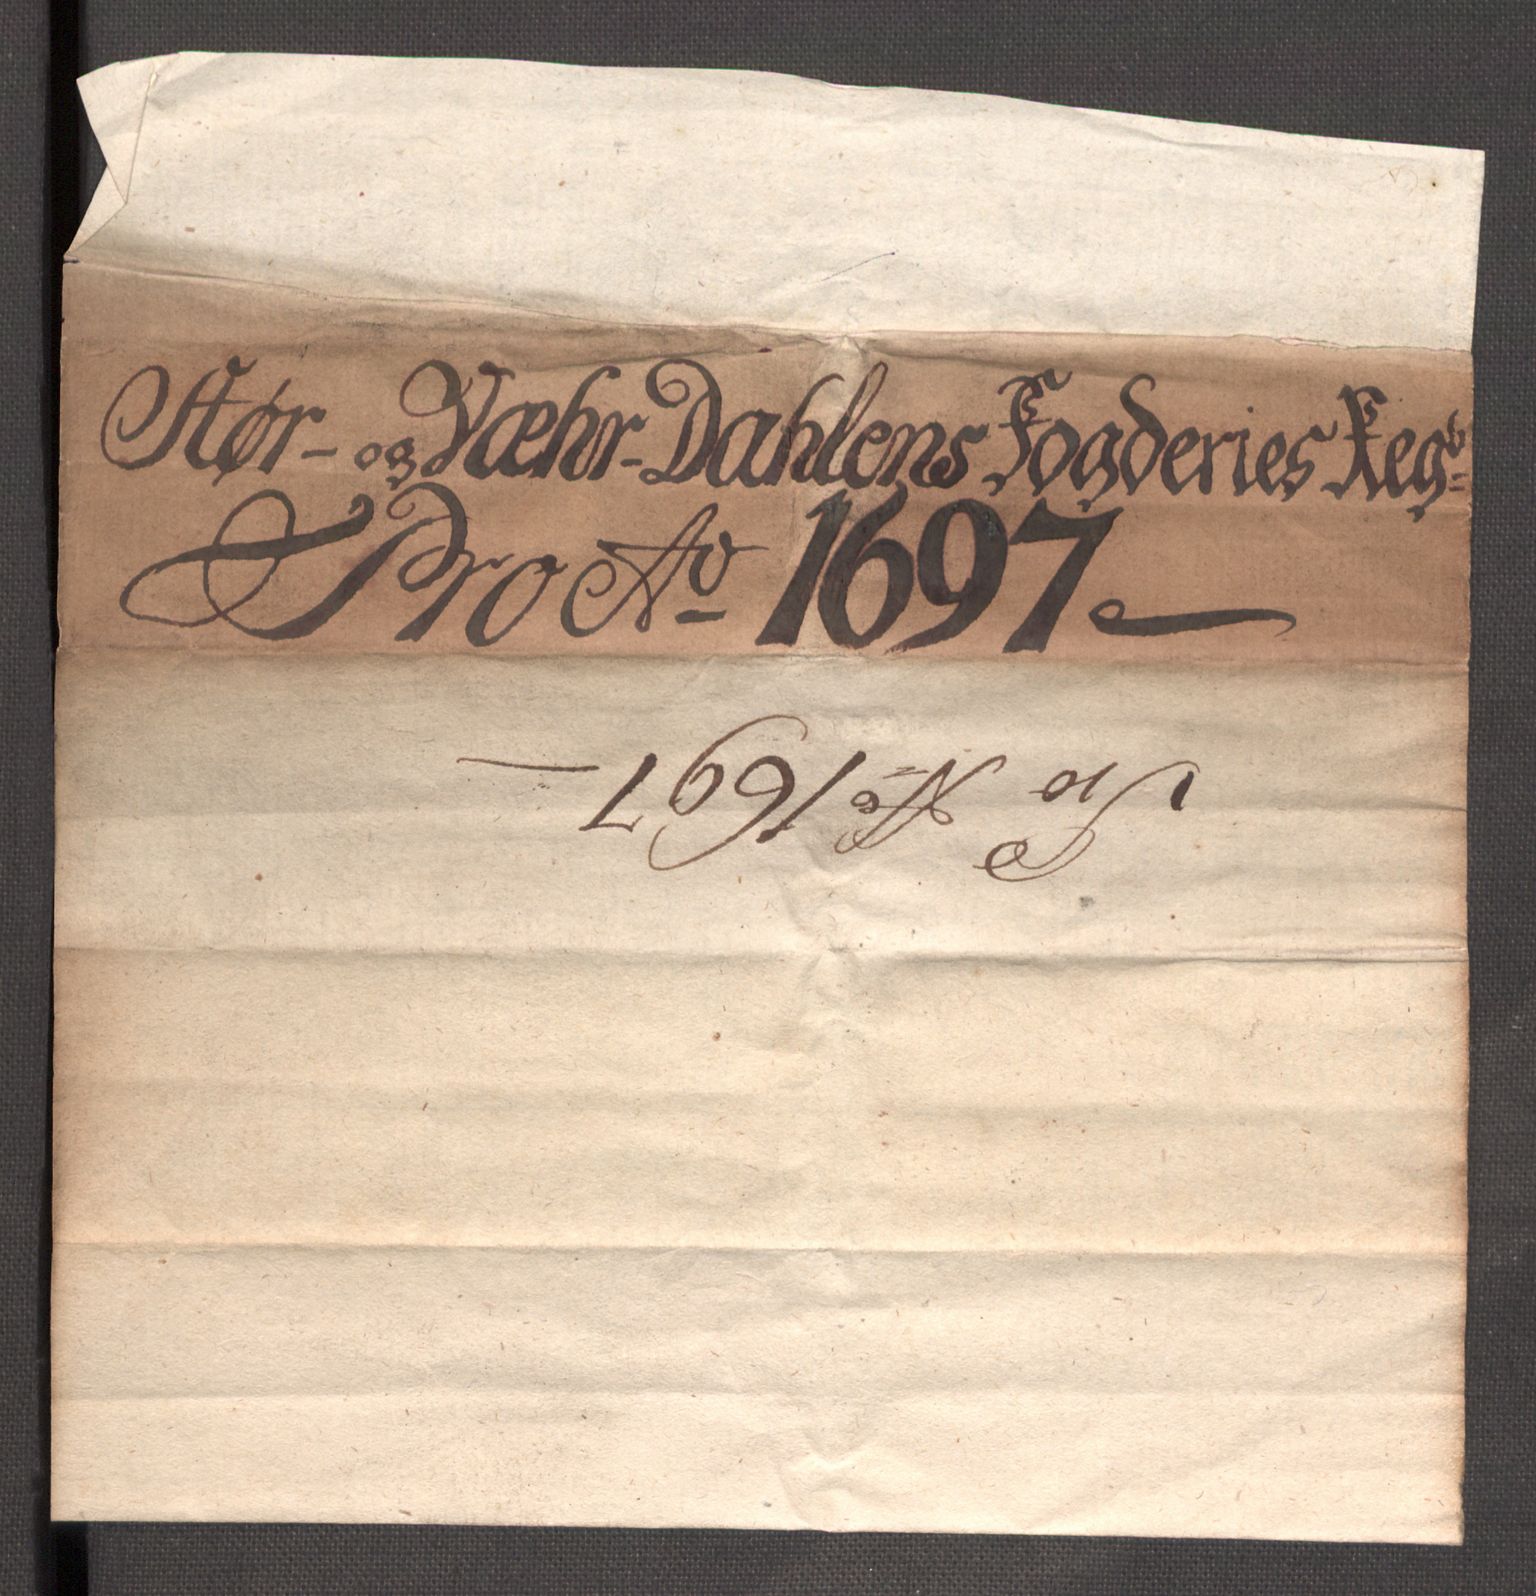 Stør- og Væhr-Dahlens Fogderies Regb:
Pro Ao 1697
Pro Ao 1697